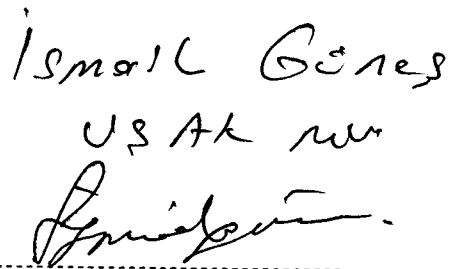 İsmail Güneş
UŞAK